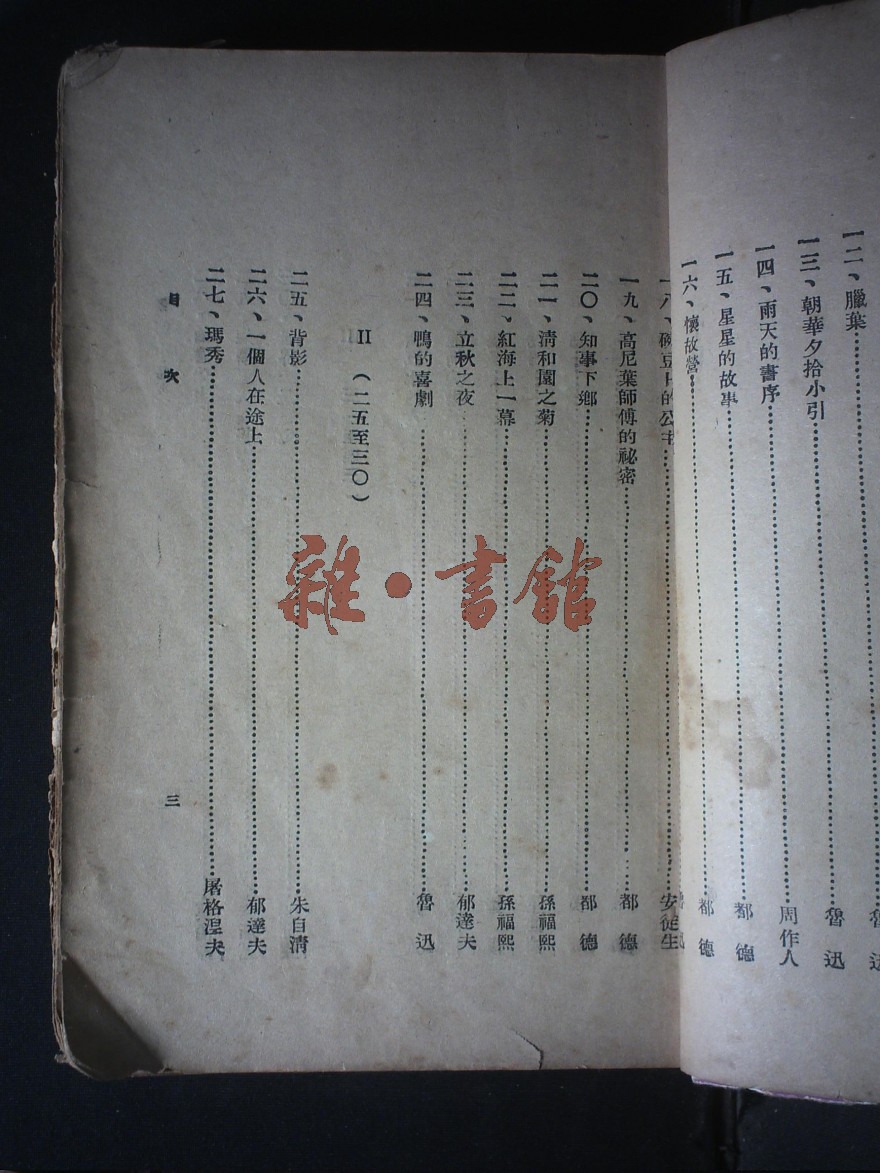 一二、臘葉………魯迅
一三、朝華夕拾小引………魯迅
一四、雨天的書序………周作人
一五、星星的故事………都德
一六、懷故營………都德
一八、碗豆上的公主………安徒生
一九、高尼葉師傅的祕密………都德
二〇、知事下鄉………都德
二一、清和園之菊………孫福熙
二二、紅海上一幕………孫福熙
二三、立秋之夜………郁達夫
二四、鴨的喜劇………魯迅
II（二五至三〇）
二五、背影………朱自清
二六、一個人在途上………郁達夫
二七、瑪秀………屠格涅夫
目次
三
雜·書館